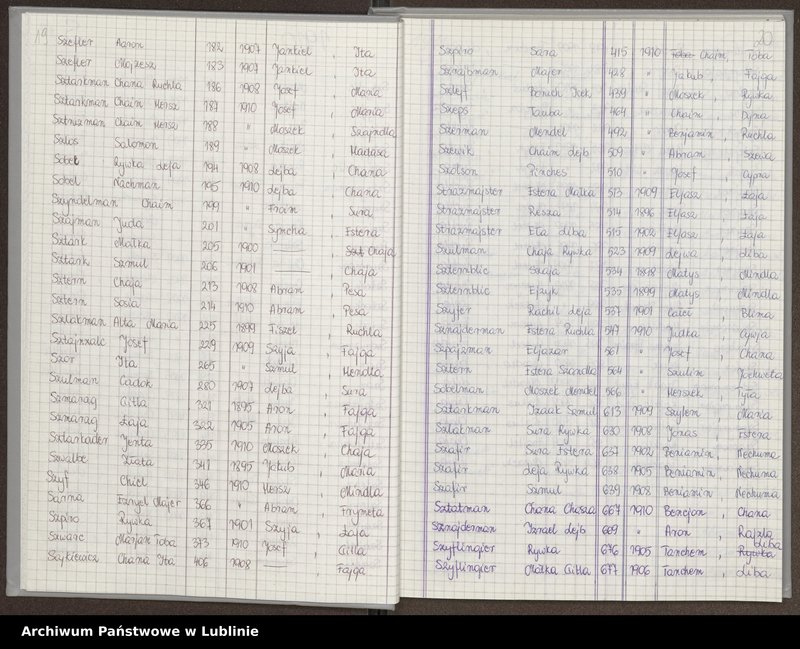 19
Szefler Aaron 182 1907 Jankiel, Ita
Szefler Mojżesz 183 1907 Jankiel, Ita
Sztarkman Chana Ruchla 186 1908 Josef, Maria
Sztarkman Chaim Hersz 187 1910 Josef, Maria
Chaim Hersz 188 " Moszek, Szajndla
Szlos Salomon 189 " Moszek, Hadasa
Sobel Rywka Leja 194 1908 Lejba, Chana
Sobel Nachman 195 1910 Lejba, Chana
Szyndelman Chaim 199 " Froim, Sura
Szajman Juda 201 " Symcha, Estera
Sztark Małka 205 1900 —, Chaja
Sztark Szmul 206 1901 —, Chaja
Sztern Chaja 213 1908 Abram, Pesa
Sztern Sosia 214 1910 Abram, Pesa
Szlakman Alta Maria 225 1899 Fiszel, Ruchla
Josef 229 1909 Szyja, Fajga
Szor Ita 265 " Szmul, Hendla
Szulman Cadok 280 1907 Lejba, Sura
Szmarag Gitla 321 1895 Aron, Fajga
Szmarag Łaja 322 1905 Aron, Fajga
Sztarkader Jenta 335 1910 Moszek, Chaja
Szwalbe Złata 341 1895 Jakub, Maria
Szyf Chiel 346 1910 Hersz, Mindla
Sarina Fazyel Majer 366 " Abram, Frymeta
Szpiro Rywka 367 1901 Szyja, Łaja
Szwarc Marjan Toba 373 1910 Josef, Gitla
Sajkiewicz Chana Ita 406 1908 —, Fajga
20
Szpiro Sara 415 1910 Chaim, Toba
Szrajbman Majer 428 " Jakub, Fajga
Szlejf Boruch Icek 439 " Moszek, Rywka
Szeps Tauba 464 " Chaim, Dyna
Szerman Mendel 492 " Benjamin, Ruchla
Szewik Chaim Lejb 509 " Abram, Szewa
Szolson Pinches 510 " Josef, Cypra
Strazmajster Estera Małka 513 1909 Eljasz, Łaja
Strazmajster Resza 514 1896 Eljasz, Łaja
Strazmajster Eta Liba 515 1902 Eljasz, Łaja
Szulman Chaja Rywka 523 1909 Lejwa, Liba
Szlemblic Szaja 534 1898 Matys, Mindla
Szlemblic Ejzyk 535 1899 Matys, Mindla
Szyfer Rachil Leja 537 1901 Calel, Blima
Sznajderman Estera Ruchla 547 1910 Judka, Cywja
Szpajzman Eljazar 561 " Josef, Chana
Sztern Estera Szandla 564 " Szulim, Jochweta
Sobelman Moszek Mendel 566 " Herszek, Tyla
Sztarkman Izaak Szmul 613 1909 Szylem, Maria
Szlakman Sura Rywka 630 1908 Jonas, Estera
Szafir Sura Estera 637 1902 Beniamin, Nechuma
Szafir Leja Rywka 638 1905 Beniamin, Nechuma
Szafir Szmul 639 1908 Beniamin, Nechuma
Sztatman Chana Chusza 667 1910 Bencjon, Chana
Sznajderman Izrael Lejb 669 " Aron, Rajzla
Szyflingier Rywka 676 1905 Tanchem, Rywka Liba
Szyflingier Małka Gitla 677 1906 Tanchem, Liba
Archiwum Państwowe w Lublinie